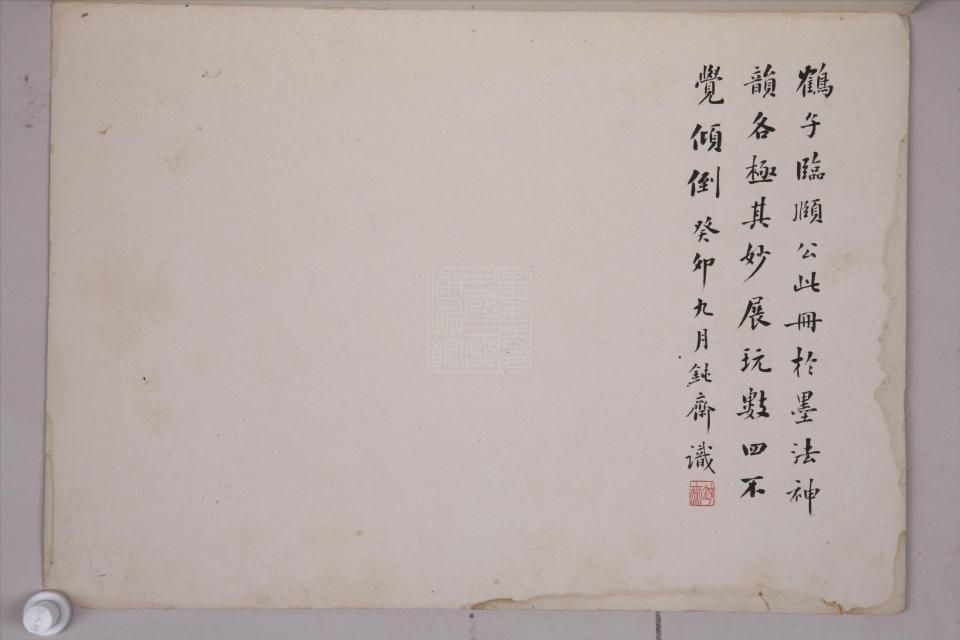 鶴子臨頤公此冊於墨法神
韻各極其妙展玩數四不
覺傾倒癸卯九月鈍齋識